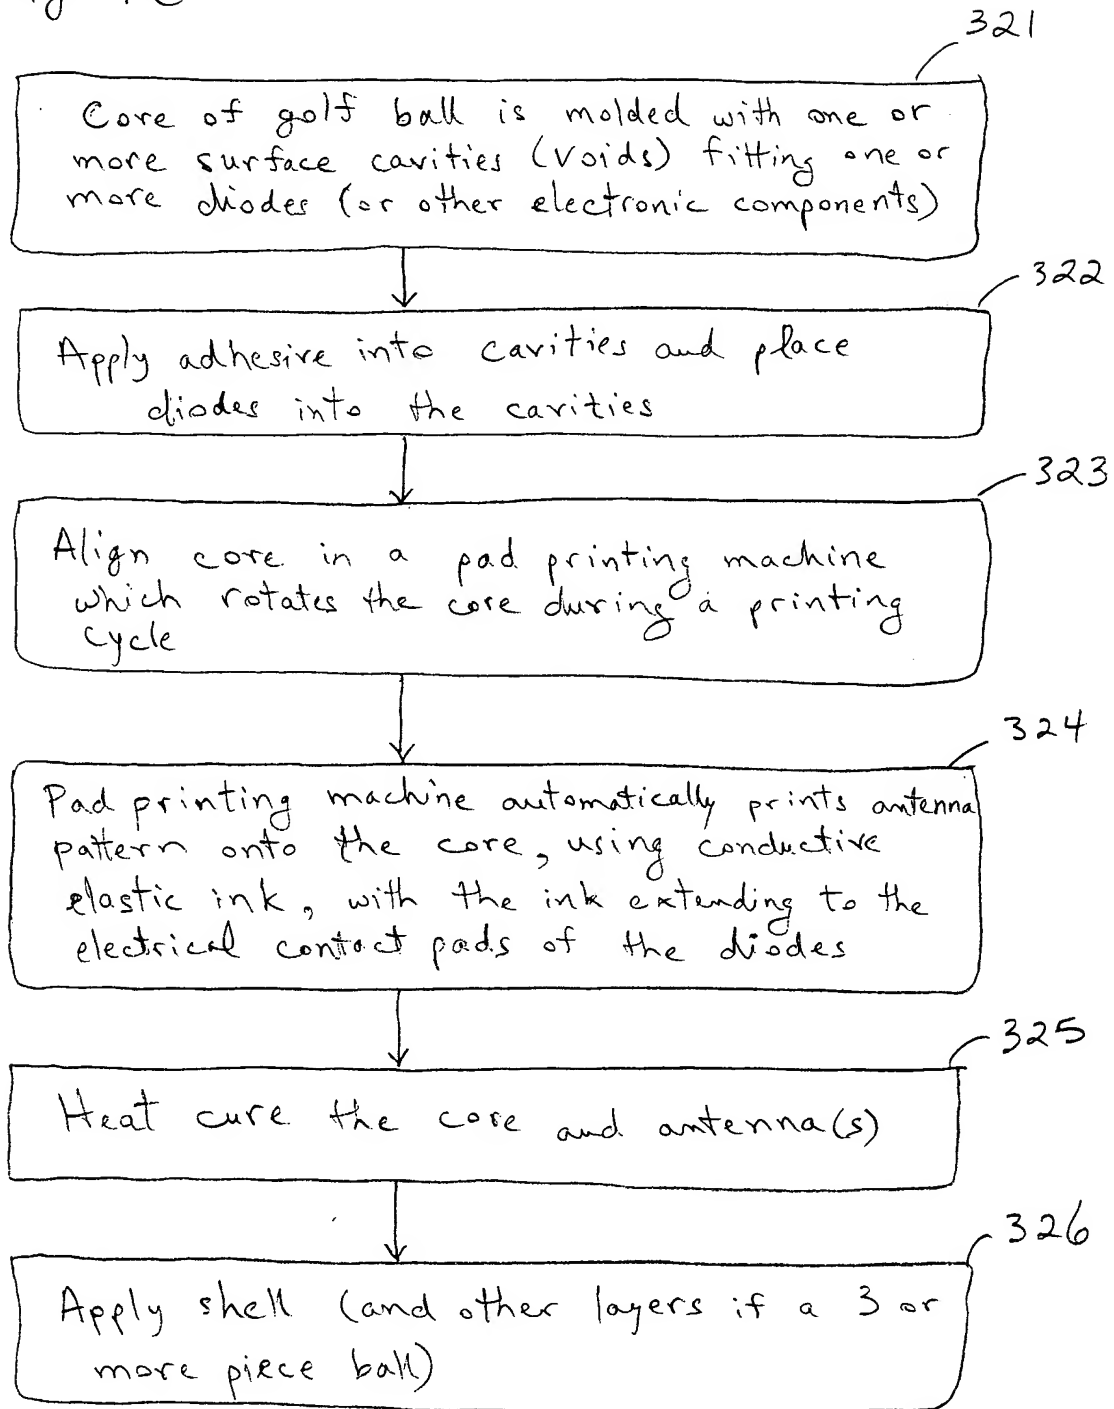 321
Core of golf ball is molded with one or
more surface cavities (voids) fitting one or
more diodes (or other electronic components)
322
Apply adhesive into cavities and place
diodes into the cavities
323
Align core in a pad printing machine
which rotates the core during a printing
cycle
324
Pad printing machine automatically prints antenna
pattern onto the core, using conductive
elastic ink, with the ink extending to the
electrical contact pads of the diodes
325
Heat cure the core and antenna(s)
326
Apply shell (and other layers if a 3 or
more piece ball)